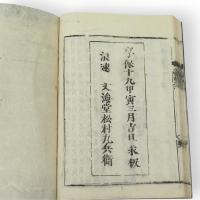 享保十九甲寅三月吉日 求板
浪速 文海堂松村九兵衞